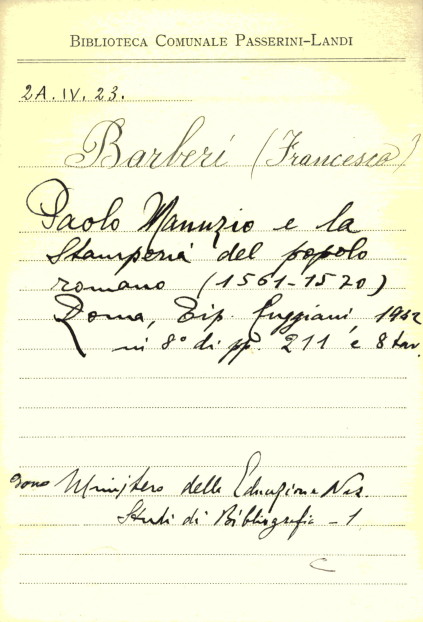 BIBLIOTECA COMUNALE PASSERINI-LANDI
2A.IV.23.
Barberi (Francesco)
Paolo Manuzio e la
Stamperia del popolo
romano (1561-1570)
Roma, Tip. Cuggiani, 1942
in 8° di pp. 211 e 8 tav.
dono Ministero della Educazione Naz.
Studi di Bibliografia - 1